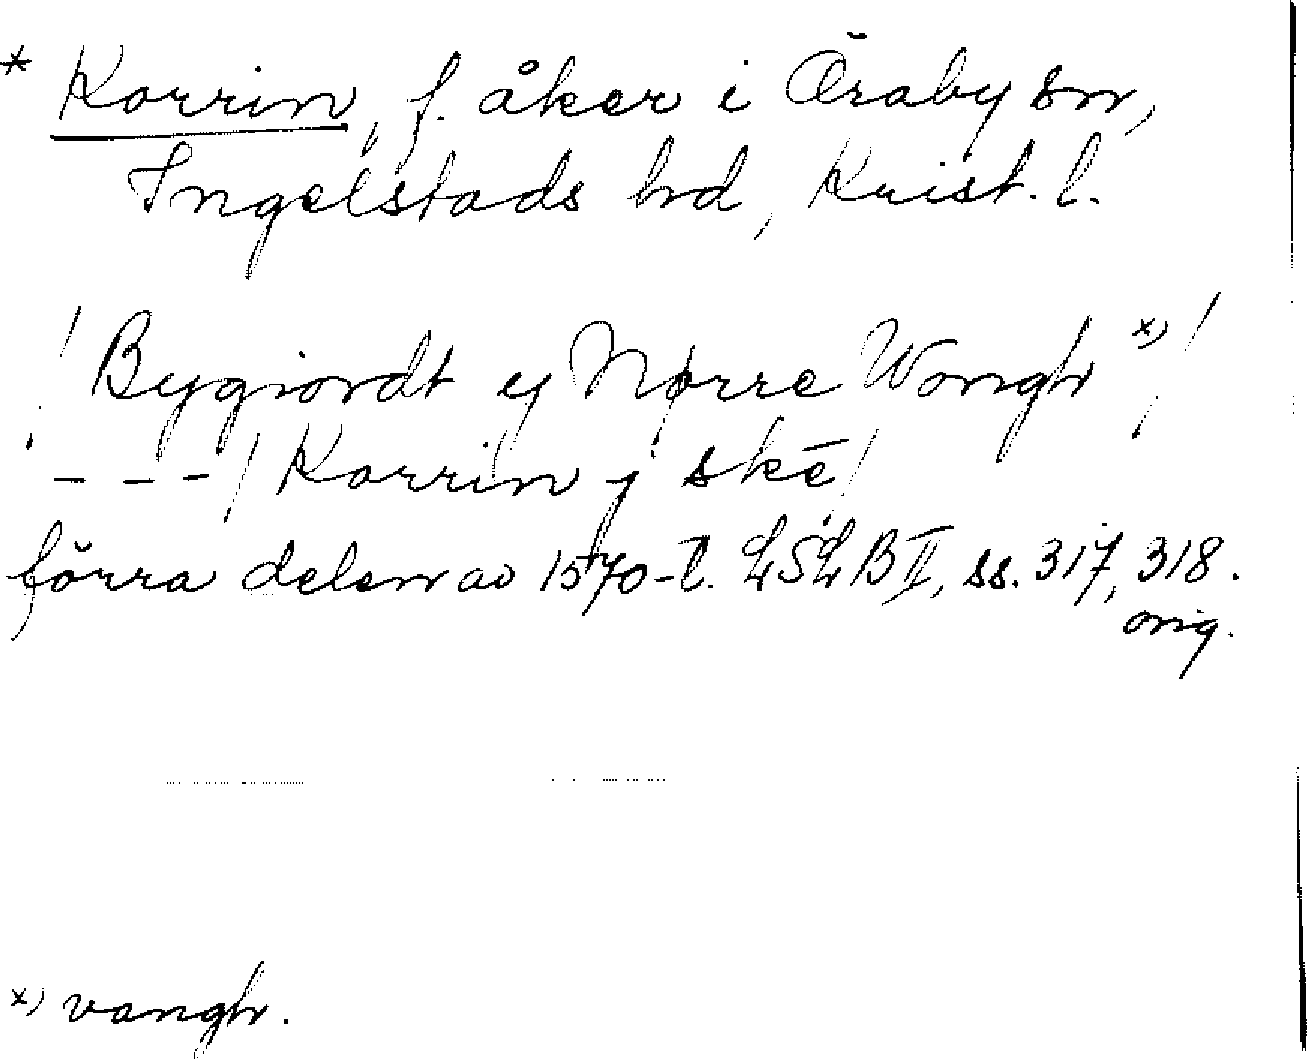 * Korrin, f. åker i Ōraby sn,
Ingelstads hd, Krist. l.
/ Bygiordt y Nørre Wongh x) /
- - - / Korrin j skē /
förra delen av 1570-t. LSLB II, ss. 317, 318.
orig.
x) vangh.